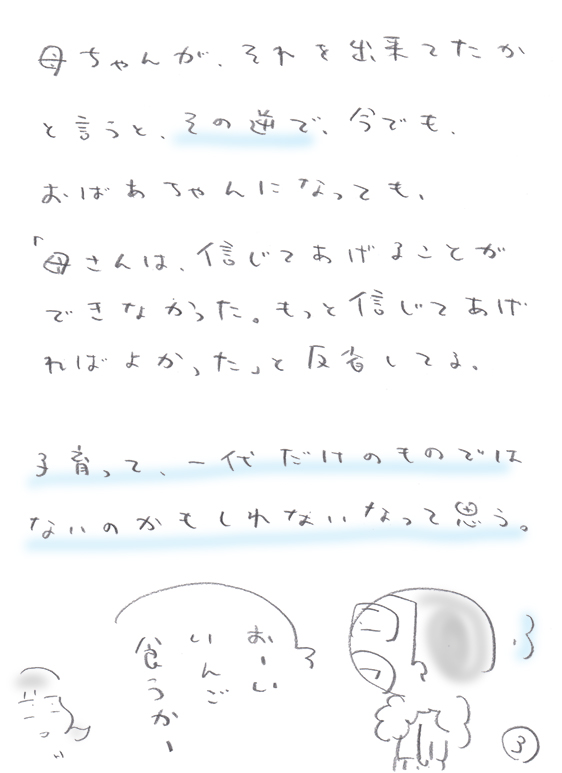 母ちゃんが、それを出来てたか
と言うと、その逆で、今でも、
おばあちゃんになっても、
「母さんは、信じてあげることが
できなかった。もっと信じてあげ
ればよかった」と反省してる。
子育って、一代だけのものでは
ないのかもしれないなって思う。
おーい
いんご
食うかー
3